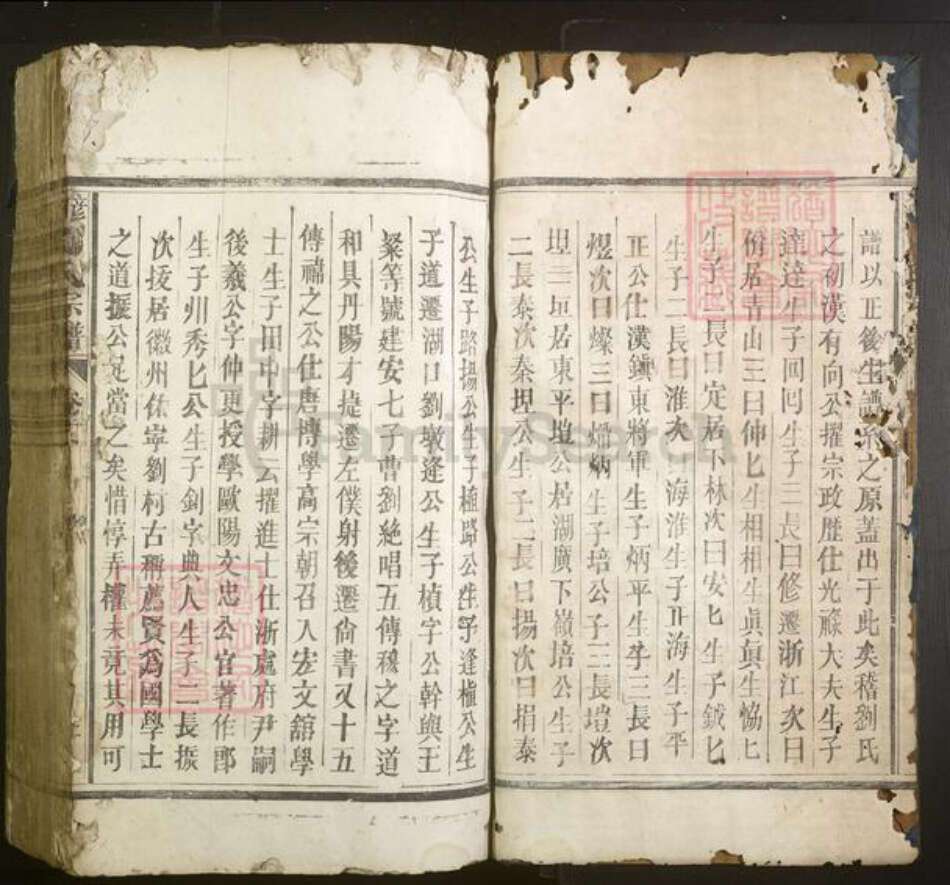 譜以正後生譜系之原蓋出于此矣稽劉氏
之初漢有向公擢宗政歷仕光祿大夫生子
達達生子回回生子三長曰修遷浙江次曰
備居青山三曰伸匕生相相生眞眞生恊匕
生子二長曰定居下林次曰安匕生子鉞匕
生子二長曰淮次曰海淮生子升海生子平
正公仕漢鎮東將軍生子炳平生子三長曰
煜次曰燦三曰燔炳生子培公子三長塏次
埕三垣居東平塏公居湖廣下嶺培公生子
二長泰次秦埕公生子二長曰揚次曰捐秦
公生子路揚公生子植路公生子逢植公生
子道遷湖口劉墩逢公生子楨字公幹與王
粲等號建安七子曹劉絶唱五傳穆之字道
和具丹陽才㨗遷左僕射後遷尙書又十五
傳禕之公仕唐博學高宗朝召入宏文舘學
士生子田中字耕云擢進士仕浙處府尹嗣
後羲公字仲更授學歐陽文忠公官著作郎
生子州秀匕公生子釗字典人生子二長振
次拔居徽州休寧劉柯古稱薦賢爲國學士
之道振公足當之矣惜惇弄權未竟其用可
氏宗譜
FamilySearch